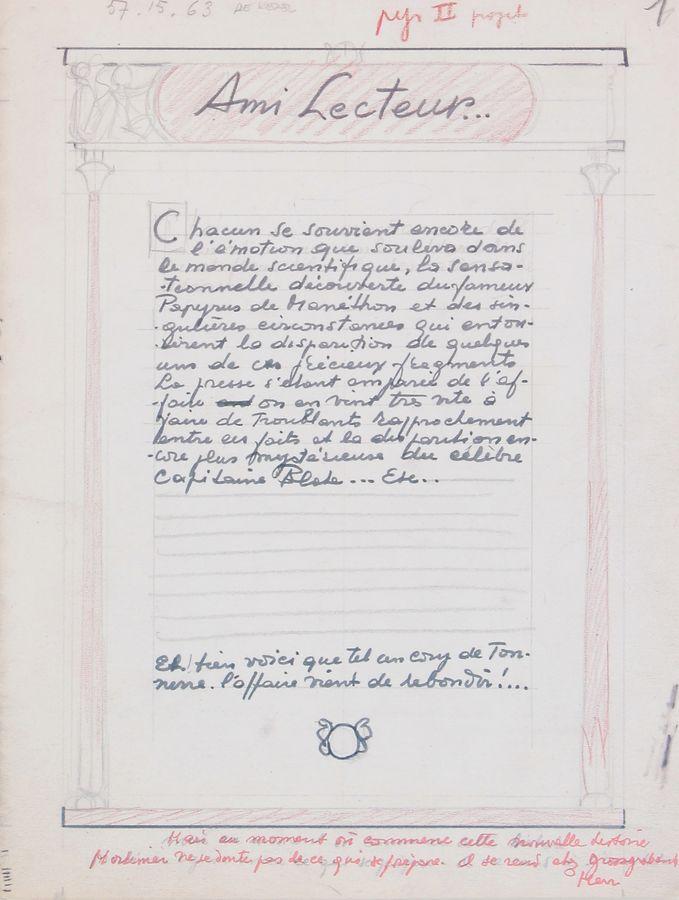 57.15.63
pçs II projet
1
Ami Lecteur...
Chacun se souvient encore de
l'émotion que souleva dans
le monde scientifique, la sensa-
-tionnelle découverte du fameux
Papyrus de Manéthon et des sin-
-gulières circonstances qui entou-
-rèrent la disparition de quelques
uns de ces précieux fragments
La presse s'étant emparée de l'af-
-faire on en vint très vite à
faire de Troublants Rapprochement
entre ces faits et la disparition en-
-core plus mystérieuse du célèbre
Capitaine Blake... Etc..
Et bien voici que tel un coup de Ton-
nerre. l'affaire vient de rebondir!...
Mais au moment où commence cette nouvelle histoire
Mortimer ne se doute pas de ce qui se prépare. il se rend chez Grossgrabenstein